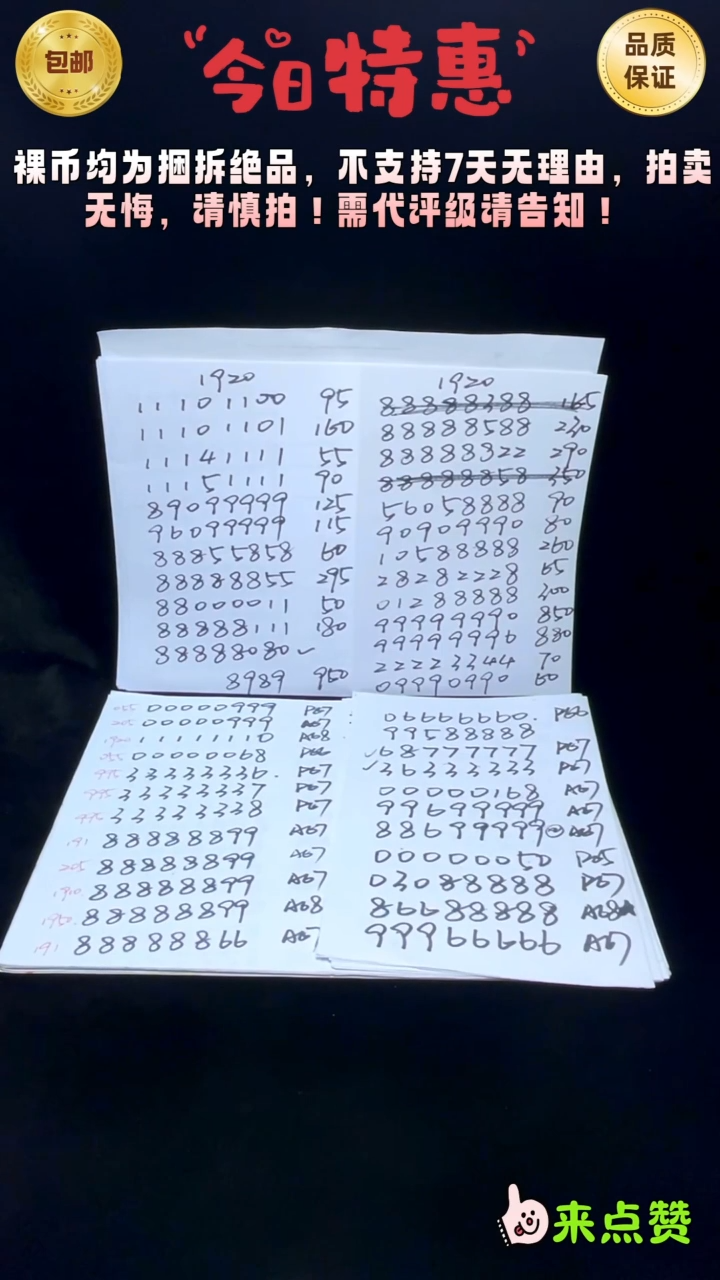 包邮
今日特惠
品质
保证
裸币均为捆拆绝品，不支持7天无理由，拍卖
无悔，请慎拍！需代评级请告知！
1920
11101100 95
11101101 160
11141111 55
11151111 90
89099999 125
96099999 115
88855858 60
88888855 295
88000011 50
88888111 180
88888080 ✓
8989 950
1920
88888388 165
88888588 230
88888322 290
88888858 350
56058888 90
90909990 80
10588888 260
28282228 65
01288888 300
99999990 850
99999996 880
22223344 70
09990990 60
255 00000999 P67
205 00000999 A67
1920 11111110 A68
255 00000068 P66
995 33333336. P67
995 33333337 P67
995 33333338 P67
191 88888899 A67
205 88888899 A67
1910 88888899 A67
1960 88888899 A68
191 88888866 A67
06666660. P66
99588888
✓68777777 P67
✓36333333 P67
00000168 A67
99699999 A67
88699999 A67
00000050 P65
03088888 P67
86688888 A68★
99966666 A67
来点赞